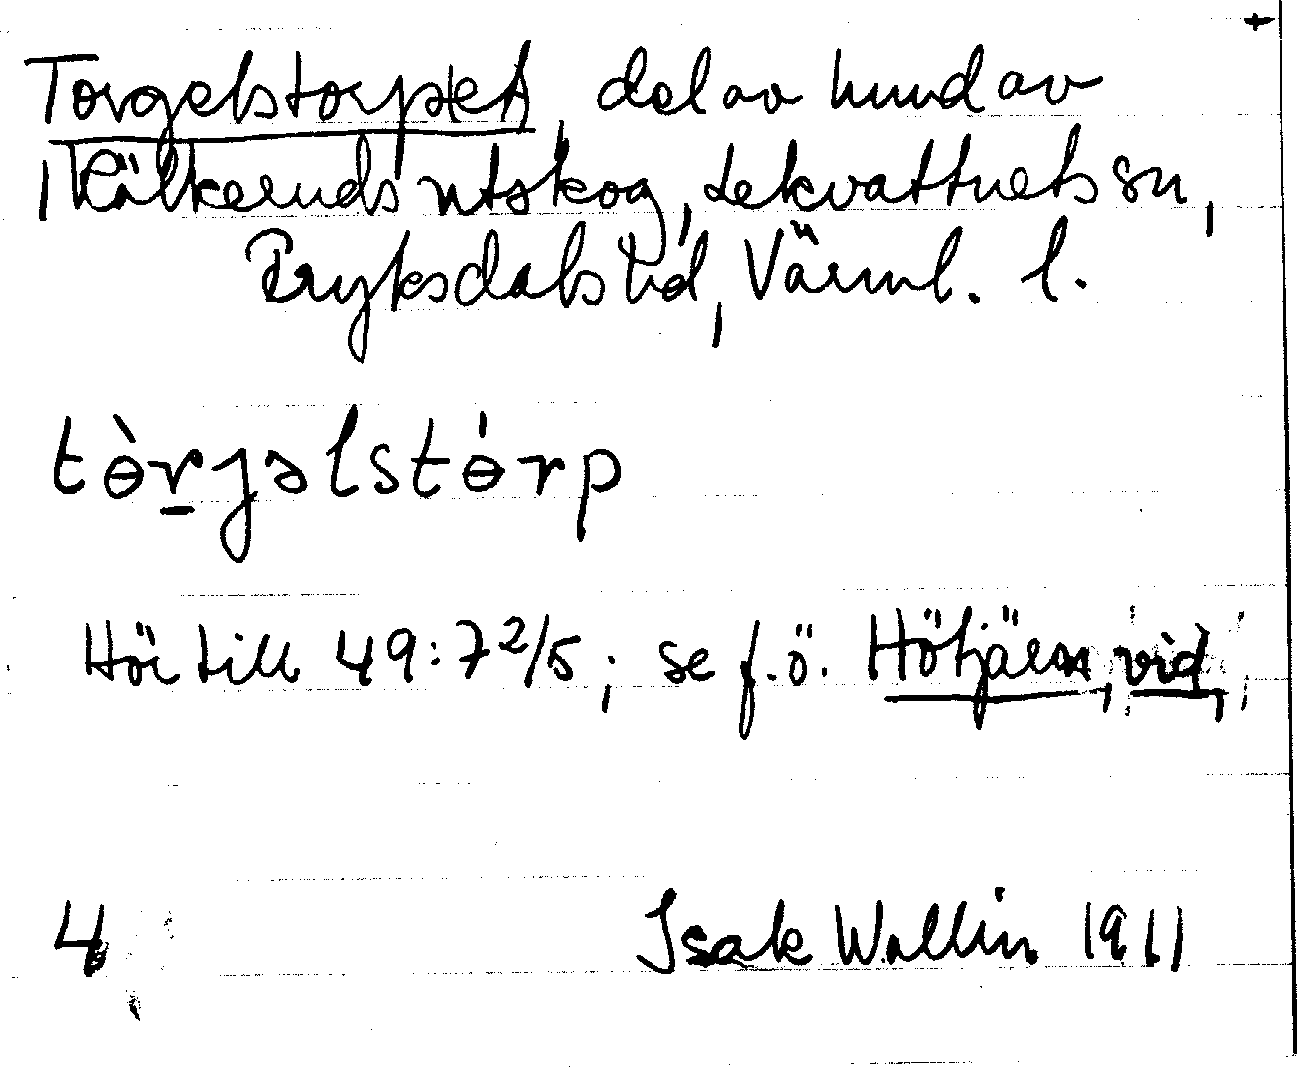 Torgelstorpet, del av hmd av
Kälkeruds utskog, Lekvattnets sn,
Fryksdals hd, Värml. l.
tɵ̀r̠jəlstɵ́rp
Hör till 49:7 2/5; se f.ö. Höljäen, vid,
4
Isak Wallin 1911